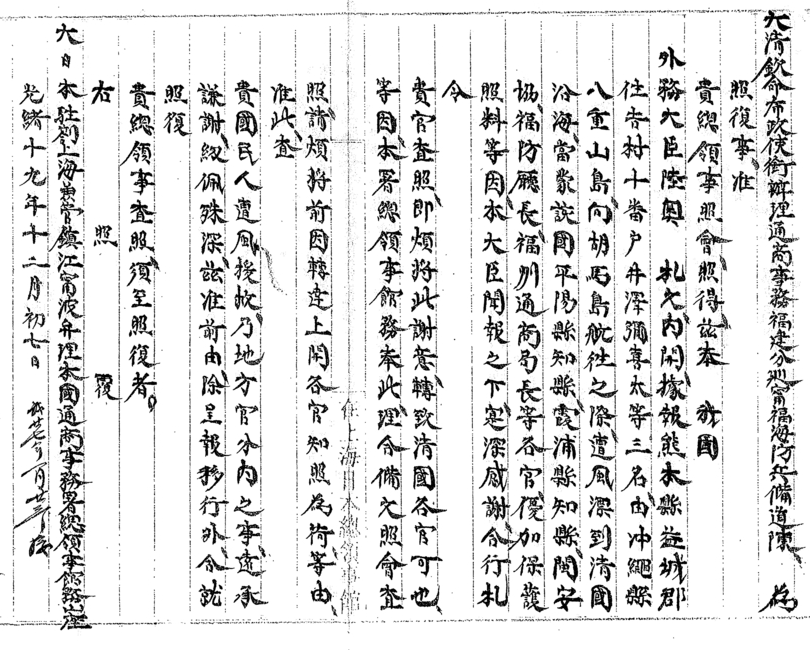 大清欽命布政使銜辦理通商事務福建分巡甯福海防兵備道陳　為
照復事准
貴總領事照會照得茲奉　我國
外務大臣陸奧　札文內開據報熊本縣益城郡
住吉村十番戶井澤彌喜太等三名由冲繩縣
八重山島向胡馬島航往之際遭風漂到清國
沿海當蒙該國平陽縣知縣霞浦縣知縣閩安
協福防廳長福州通商局長等各官優加保護
照料等因本大臣聞報之下寔深感謝合行札
令
貴官查照即煩將此謝意轉致清國各官可也
等因本署總領事館務奉此理合備文照會查
照請煩將前因轉達上開各官知照為荷等由
准此查
貴國民人遭風援救乃地方官分內之事遠承
謙謝紉佩殊深茲准前由除呈報移行外合就
照復
貴總領事查照須至照復者
右　照　覆
大日本駐劄上海兼管鎮江甯波弁理本國通商事務署總領事館務
光緒十九年十二月初七日
在上海日本總領事館